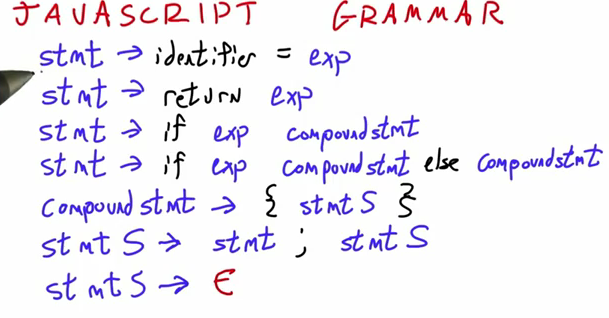 JAVASCRIPT GRAMMAR
stmt → identifier = exp
stmt → return exp
stmt → if exp compoundstmt
stmt → if exp compoundstmt else compoundstmt
compoundstmt → { stmtS }
stmtS → stmt ; stmtS
stmtS → ϵ